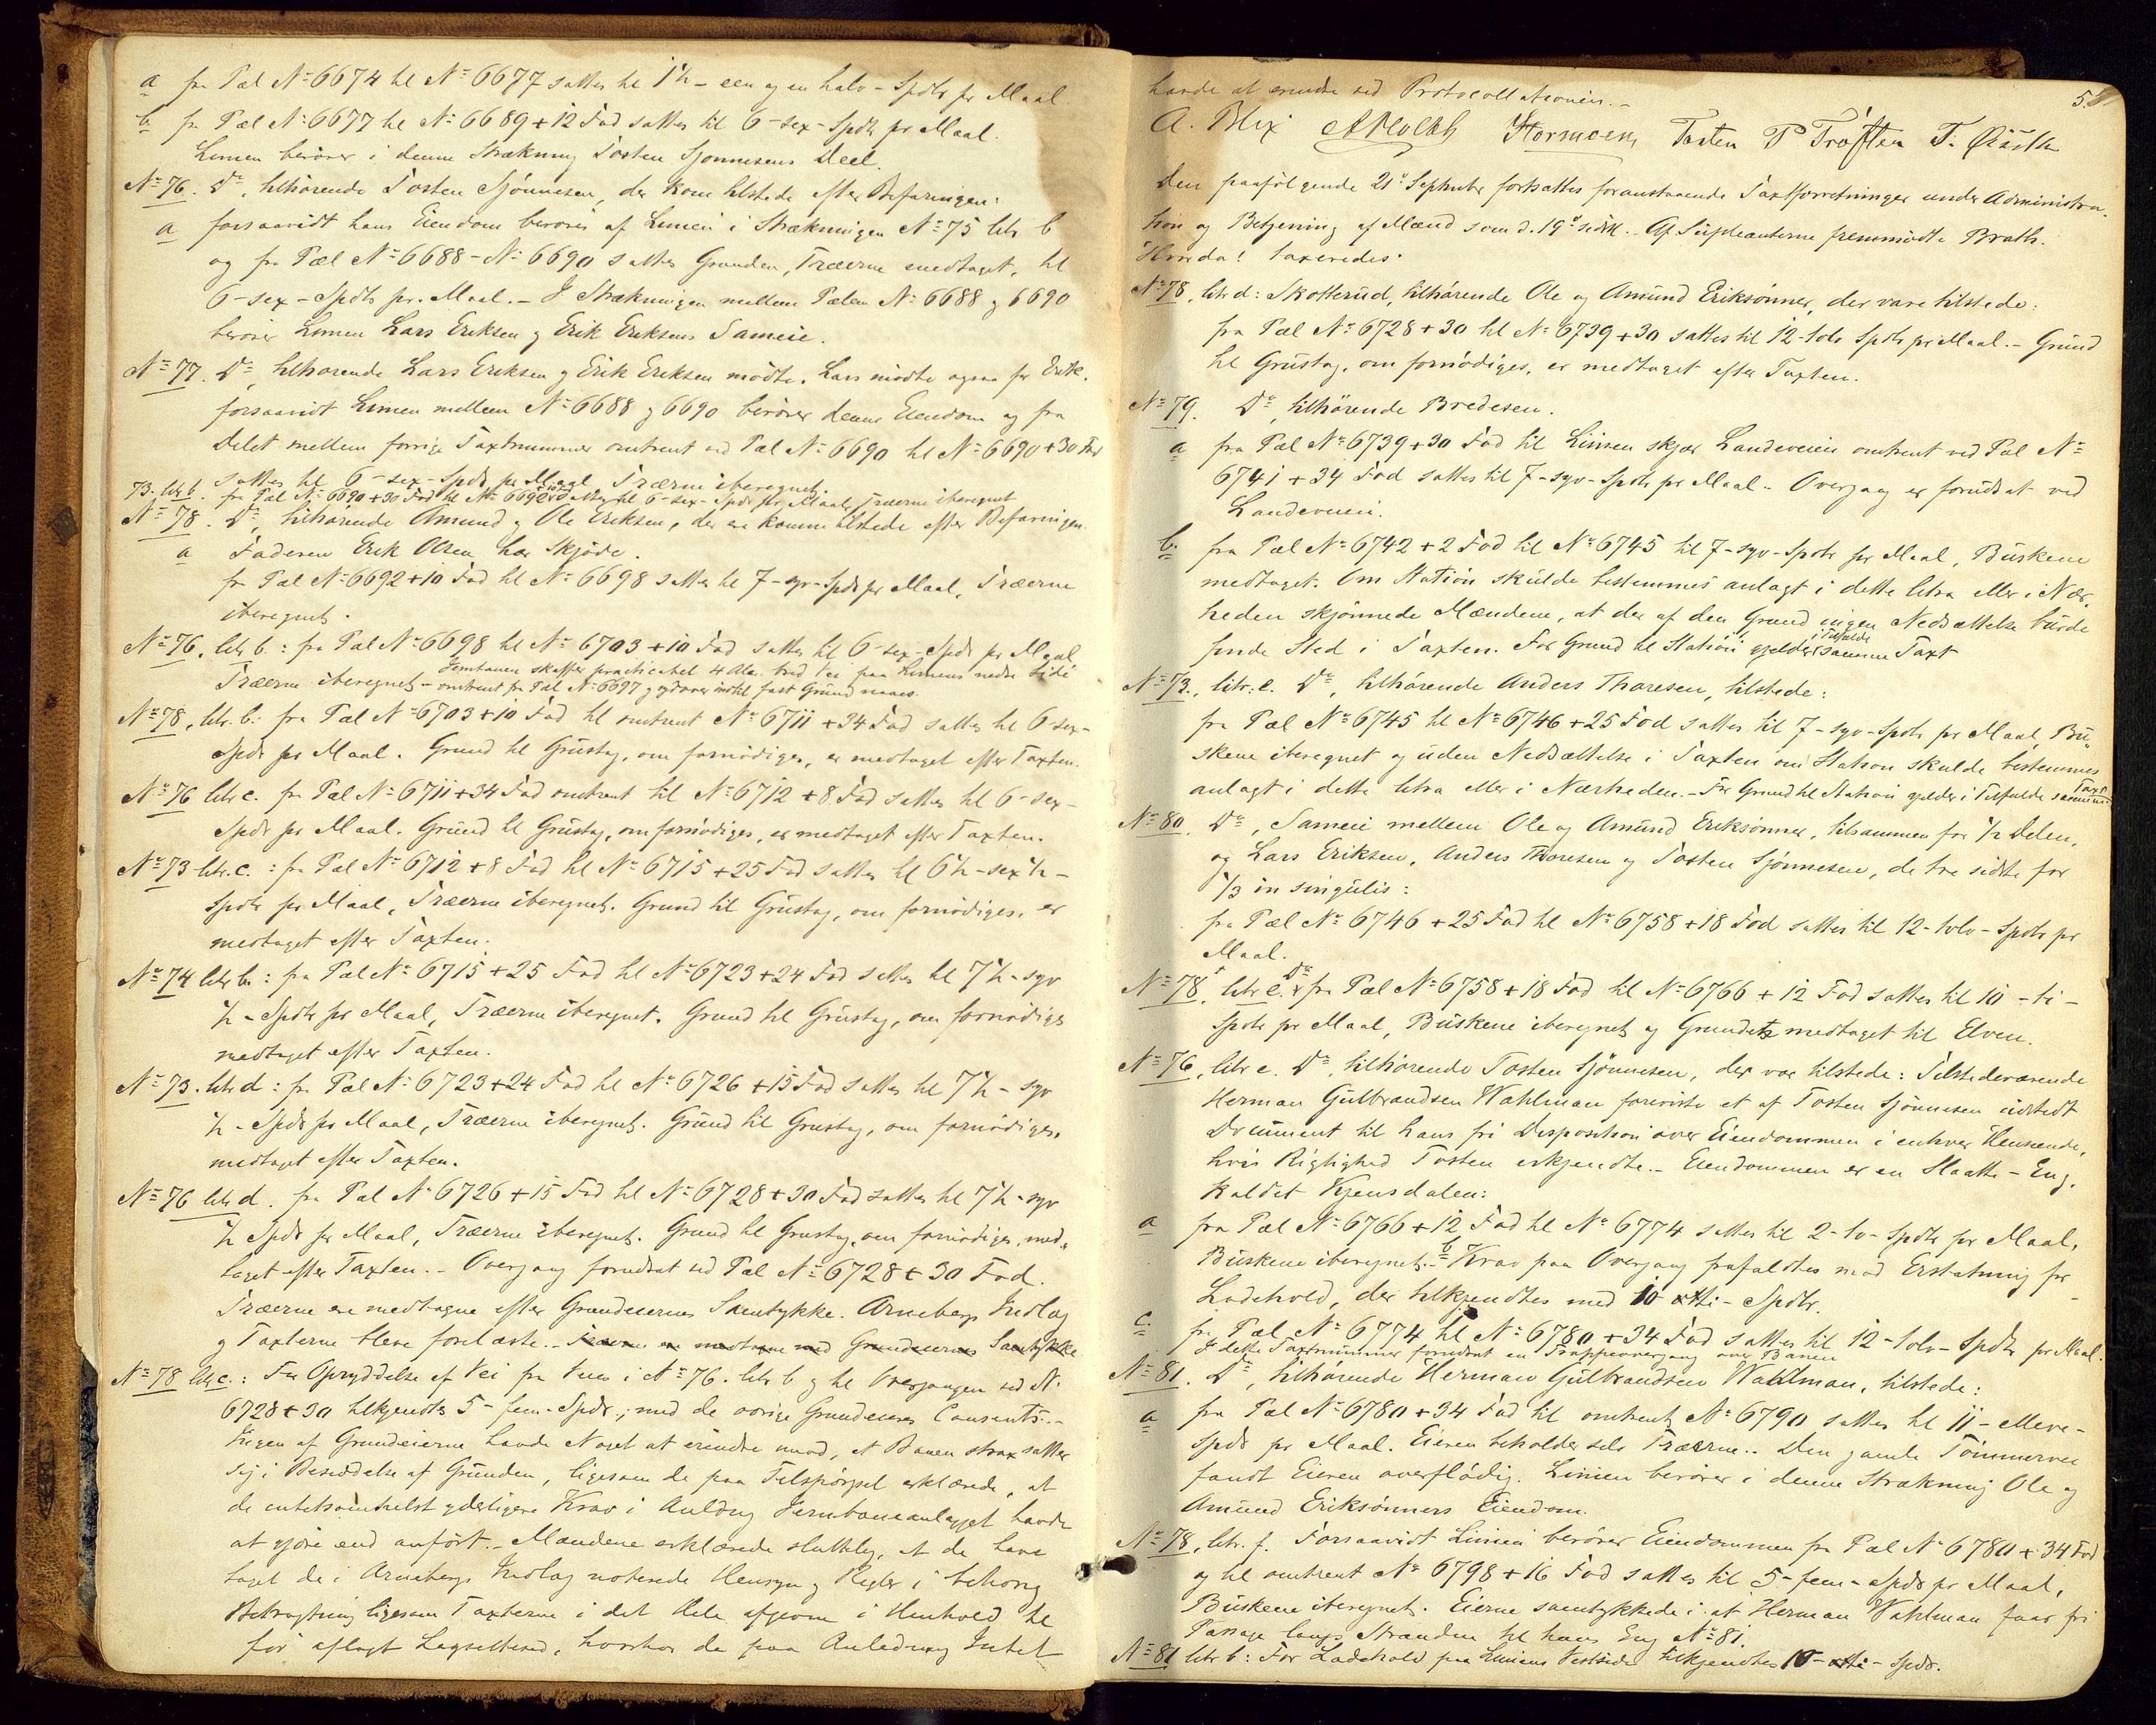 a fra Pæl No 6674 til No 6677 sattes til 1½ - een og en halv - Spdlr pr Maal.
b. fra Pæl No 6677 til No 6689 + 12 Fod sattes til 6 - sex - Spdlr pr Maal.
Linien berører i denne Strækning Tosten Sjønnesens Deel.
No 76. Do, tilhørende Tosten Sjønnesen, der kom tilstede efter Befaringen:
a forsaavidt hans Eiendom berøres af Linien i Strækningen No 75 litr b
og fra Pæl No 6688 - No 6690 sattes Grunden, Træerne medtaget, til
6 - sex - Spdlr pr. Maal. - I Strækningen mellem Pælene No 6688 og 6690
berører Linien Lars Eriksen og Erik Eriksens Sameie.
No 77. Do, tilhørende Lars Eriksen og Erik Eriksen mødte. Lars mødte ogsaa for Erik.
forsaavidt Linien mellem No 6688 og 6690 berører denne Eiendom og fra
Delet mellem forrige Taxtnummer omtrent ved Pæl No 6690 til No 6690 + 30 Fod
sattes til 6 - sex - Spdlr pr Maal Træerne iberegnet.
73. litr b. fra Pæl No 6690 + 30 Fod til No 6692 + 10 Fod sattes til 6 - sex - Spdlr pr Maal, Træerne iberegnet
No 78. Do, tilhørende Amund og Ole Eriksen, der ere komne tilstede efter Befaringen.
a Faderen Erik Olsen har Skjøde.
fra Pæl No 6692 + 10 Fod til No 6698 sattes til 7 - syv - Spdlr pr Maal, Træerne
iberegnet.
No 76. litr b.: fra Pæl No 6698 til No 6703 + 10 Fod sattes til 6 - sex - Spdlr pr Maal
Jernbanen skaffer practicabel 4 Alen bred Vei paa Liniens nedre Side
Træerne iberegnet - omtrent fra Pæl No 6697 og nordover indtil fast Grund naaes.
No 78, litr. b: fra Pæl No 6703 + 10 Fod til omtrent No 6711 + 34 Fod sattes til 6 - sex -
Spdlr pr Maal. Grund til Grustag, om fornødiges, er medtaget efter Taxten.
No 76 litr c. fra Pæl No 6711 + 34 Fod omtrent til No 6712 + 8 Fod sattes til 6 - sex -
Spdlr pr Maal. Grund til Grustag, om fornødiges, er medtaget efter Taxten.
No 73 litr. c.: fra Pæl No 6712 + 8 Fod til No 6715 + 25 Fod sattes til 6½ - sex ½ -
Spdlr pr Maal, Træerne iberegnet. Grund til Grustag, om fornødiges, er
medtaget efter Taxten.
No 74 litr b.: fra Pæl No 6715 + 25 Fod til No 6723 + 24 Fod sattes til 7½ - syv
½ - Spdlr pr Maal, Træerne iberegnet. Grund til Grustag, om fornødiges
medtaget efter Taxten.
No 73. litr d: fra Pæl No 6723 + 24 Fod til No 6726 + 15 Fod sattes til 7½ - syv
½ - Spdlr pr Maal, Træerne iberegnet. Grund til Grustag, om fornødiges,
medtaget efter Taxten.
No 76 litr d. fra Pæl No 6726 + 15 Fod til No 6728 + 30 Fod sattes til 7½ - syv
½ Spdlr pr Maal, Træerne iberegnet. Grund til Grustag, om fornødiges, med-
taget efter Taxten. - Overgang forudsat ved Pæl No 6728 + 30 Fod.
Træerne ere medtagne efter Grundeiernes Samtykke. Arnebergs Indlag
og Taxterne bleve forelæste. - Træerne ere medtagne med Grundeiernes Samtykke
No 78 litr c.: For Opryddelse af Vei fra Veien i No 76. litr b og til Overgangen ved No
6728 + 30 tilkjendtes 5 - fem - Spdlr, med de øvrige Grundeieres Consents. -
Ingen af Grundeierne havde Noget at erindre imod, at Banen strax satte
sig i Besiddelse af Grunden, ligesom de paa Tilspørgsel erklærede, at
de intetsomhelst yderligere Krav i Anledng Jernbaneanlægget havde
at gjøre end anført. - Mændene erklærede sluttelig, at de have
taget de i Arnebergs Indlag noterede Hensyn og Regler i behørig
Betragtning ligesom Taxterne i det Hele afgivne i Henhold til
før aflagt Lagrettesed, hvorhos de paa Anledning Intet

58
havde at erindre ved Protocollationen. -
A. Blix Tosten P Trøften
Den paafølgende 21de September fortsattes foranstaaende Taxtforretninger under Administra-
tion og Betjening af Mænd som d. 19de sidstl. - Af Supleanterne fremmødte Brath.
Hvorda! taxeredes:
No 78, litr d: Skotterud, tilhørende Ole og Amund Eriksønner, der vare tilstede:
fra Pæl No 6728 + 30 til No 6739 + 30 sattes til 12 - tolv Spdlr pr Maal. - Grund
til Grustag, om fornødiges, er medtaget efter Taxten.
No 79. Do, tilhørende Bredesen.
a fra Pæl No 6739 + 30 Fod til Linien skjær Landeveien omtrent ved Pæl No
6741 + 34 Fod sattes til 7 - syv - Spdlr pr Maal. Overgang er forudsat ved
Landeveien.
b. fra Pæl No 6742 + 2 Fod til No 6745 til 7 - syv - Spdlr pr Maal, Buskene
medtaget. Om Station skulde bestemmes anlagt i dette litra eller i Nær-
heden skjønnede Mændene, at der af den Grund ingen Nedsættelse burde
finde Sted i Taxten. For Grund til Station gjelder i Tilfælde samme Taxt
No 73., litr. e. Do, tilhørende Anders Thoresen, tilstede:
fra Pæl No 6745 til No 6746 + 25 Fod sattes til 7 - syv - Spdlr pr Maal, Bu-
skene iberegnet og uden Nedsættelse i Taxten om Station skulde bestemmes
anlagt i dette litra eller i Nærheden. - For Grund til Station gjelder i Tilfælde samme Taxt
No 80. Do, Sameie mellem Ole og Amund Eriksønner, tilsammen for ½ Delen,
og Lars Eriksen, Anders Thoresen og Tosten Sjønnesen, de tre sidste for
1/3 in singulis:
fra Pæl No 6746 + 25 Fod til No 6758 + 18 Fod sattes til 12 - tolv - Spdlr pr
Maal.
No 78, litr e. Do fra Pæl No 6758 + 18 Fod til No 6766 + 12 Fod sattes til 10 - ti -
Spdlr pr Maal, Buskene iberegnet og Grunden medtaget til Elven.
No 76, litr e. Do, tilhørende Tosten Sjønnesen, der var tilstede: Tilstedeværende
Herman Gulbrandsen Wahlman foreviste et af Tosten Sjønnesen udstedt
Document til hans fri Disposition over Eiendommen i enhver Henseende,
hvis Rigtighed Tosten erkjendte. - Eiendommen er en Slaatte-Eng,
kaldet Kjensdalen:
a fra Pæl No 6766 + 12 Fod til No 6774 sattes til 2 - to - Spdlr pr Maal,
Buskene iberegnet. - b Krav paa Overgang frafaldtes mod Erstatning for
Ladehold, der tilkjendtes med 10 - ti - Spdlr.
c. fra Pæl No 6774 til No 6780 + 34 Fod sattes til 12 - tolv - Spdlr pr Maal.
I dette Taxtnummer forudsat en Trappeovergang over Banen
No 81. Do, tilhørende Herman Gulbrandsen Wahlman, tilstede:
a fra Pæl No 6780 + 34 Fod til omtrent No 6790 sattes til 11 - elleve -
Spdlr pr Maal. Eieren beholder selv Træerne. - Den gamle Tømmervei
fandt Eieren overflødig. Linien berører i denne Strækning Ole og
Amund Eriksønners Eiendom.
No 78, litr. f. Forsaavidt Linien berører Eiendommen fra Pæl No 6780 + 34 Fod
og til omtrent No 6798 + 16 Fod sattes til 5 - fem - Spdlr pr Maal,
Buskene iberegnet. Eierne samtykkede i at Herman Wahlman faar fri
Passage langs Stranden til hans Eng No 81.
No 81 litr b: For Ladehold paa Liniens Vestside tilkjendtes 10 - ti - Spdr.